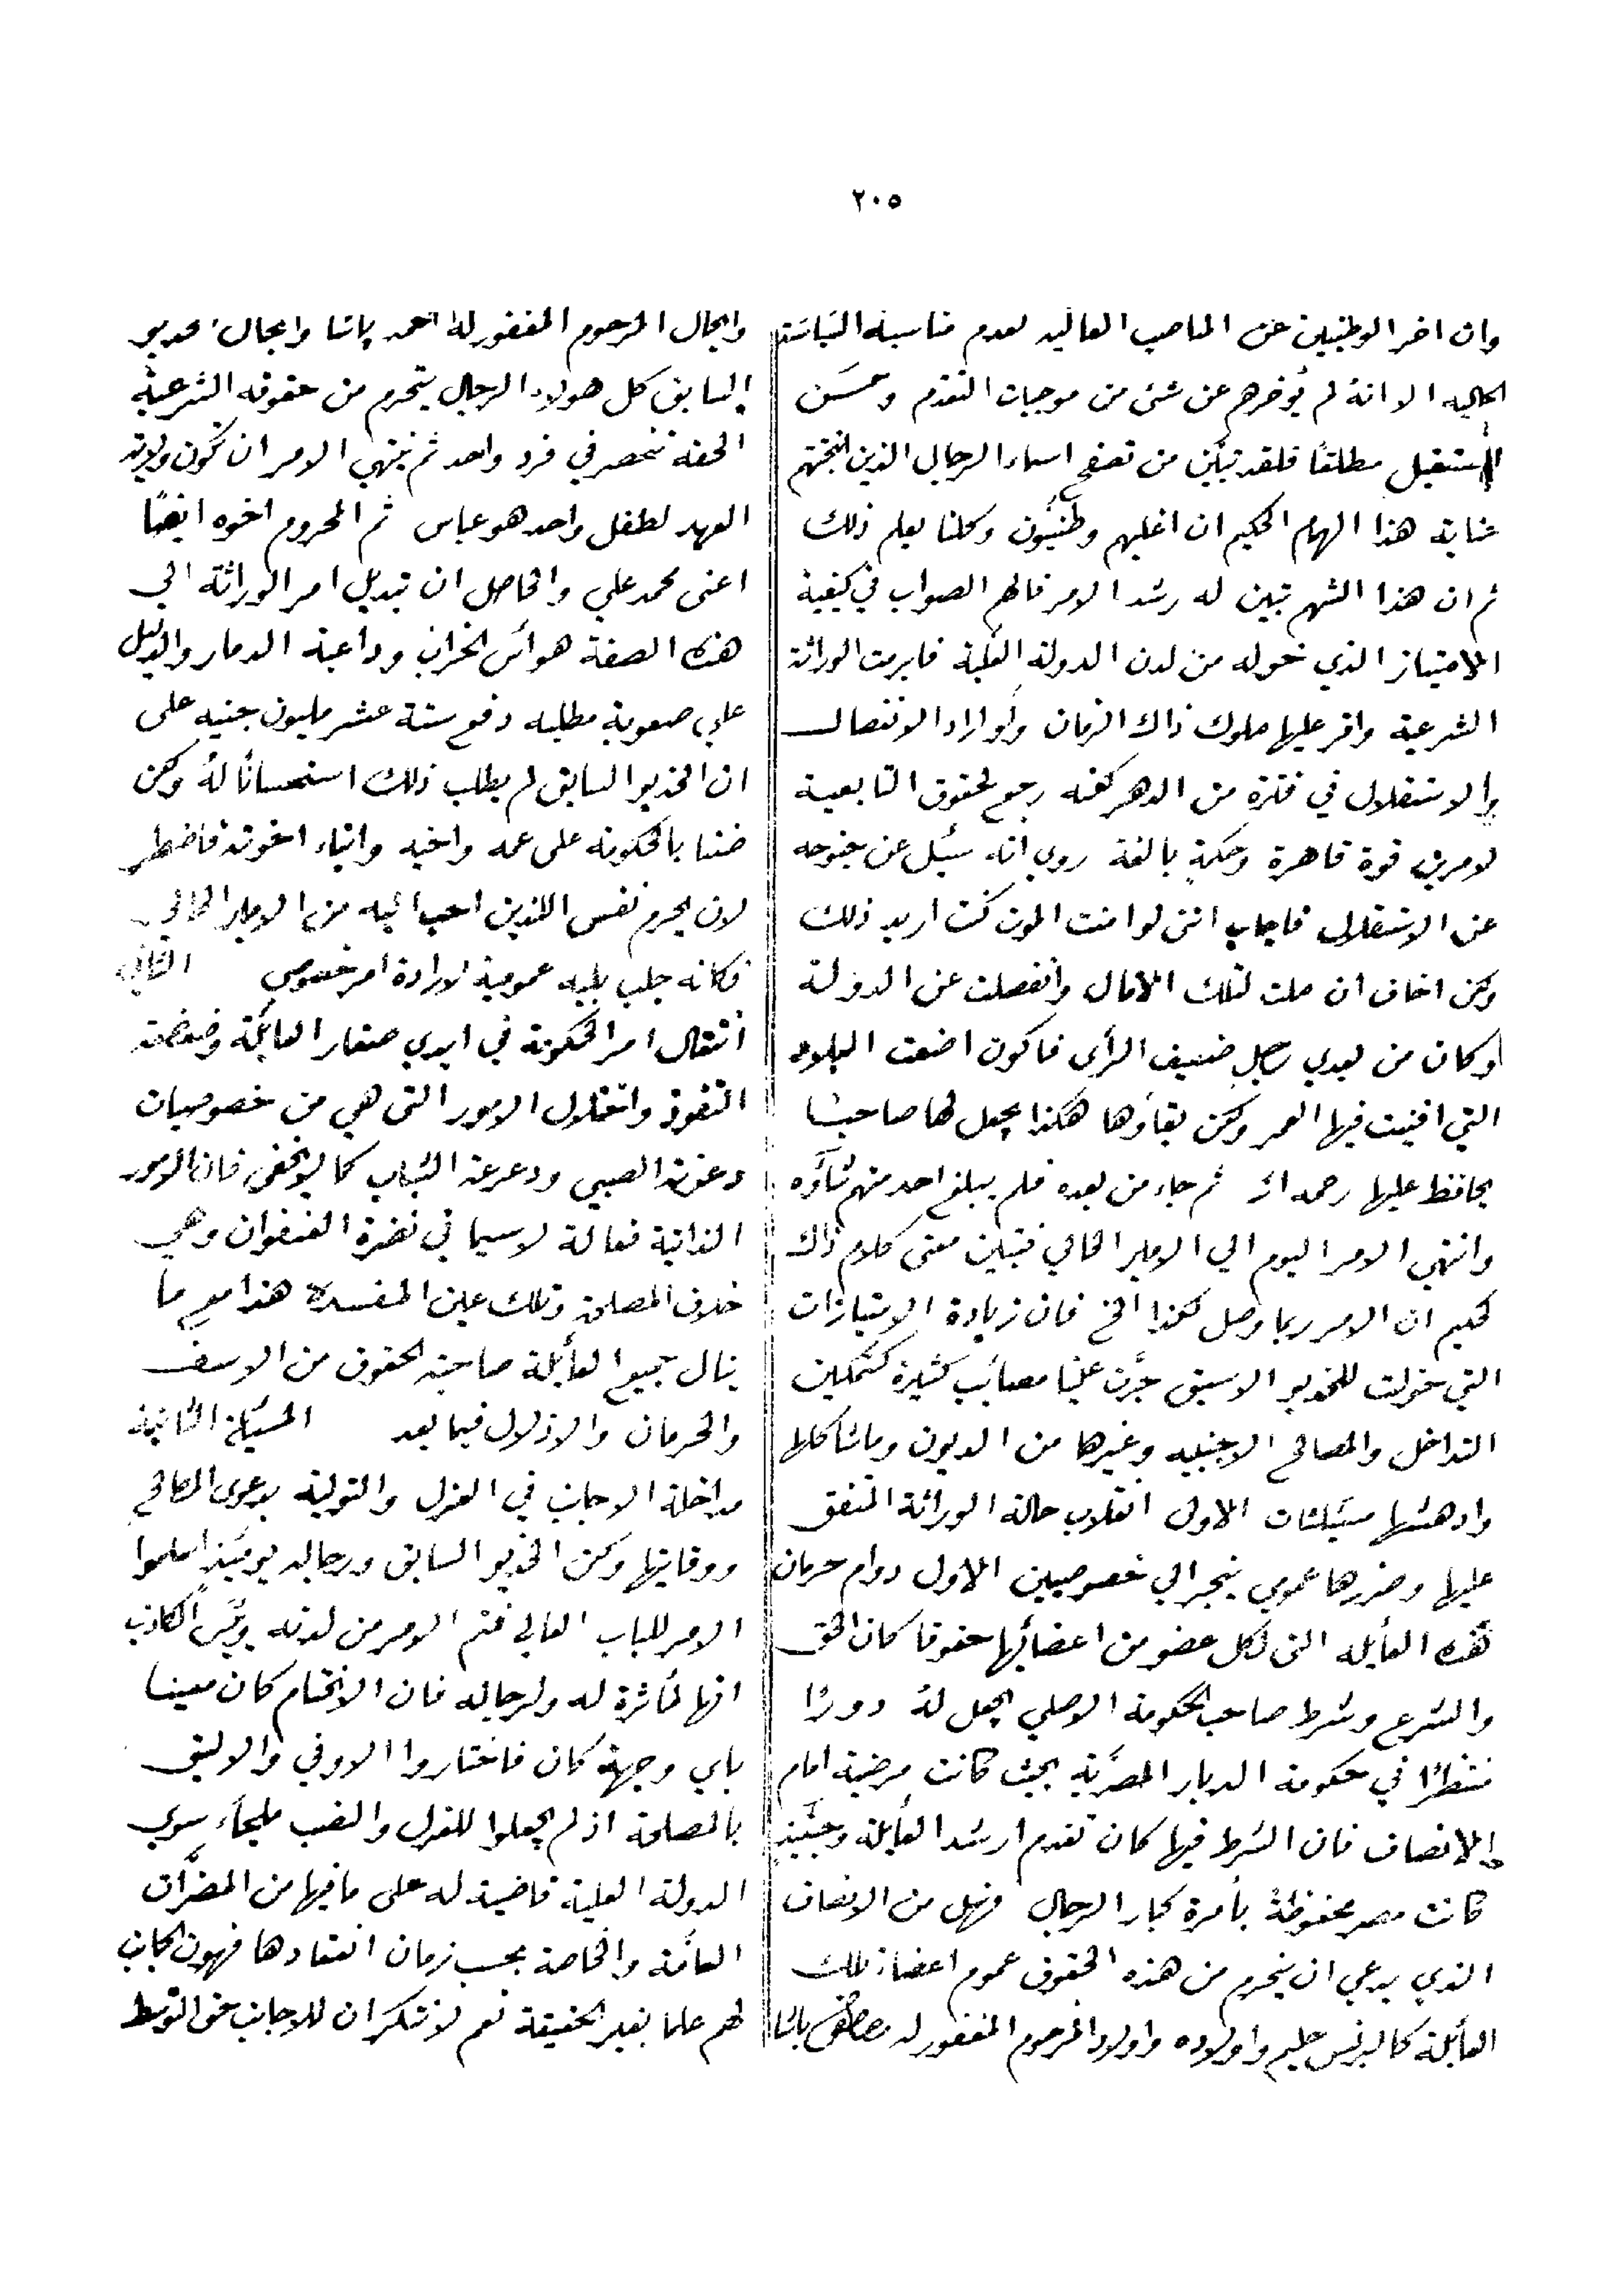 ٢٠٥
وان اخر الوطنيين عن المناصب العاليه لعدم مناسبة السياسة
الحاليه الا انهُ لم يُؤخرهم عن شئ من موجبات التقدم وحسن
المستقبل مطلقاً فلقد تبين من تصفح اسماء الرجال الذين انتجتهم
عناية هذا الهمام الحكيم ان اغلبهم وطنيُّون وكلنا يعلم ذلك
ثم ان هذا الشهم تبين له رشد الامر فالهم الصواب في كيفية
الامتياز الذي خوله من لدن الدولة العلية فابرمت الوراثة
الشرعية واقر عليها ملوك ذاك الزمان ولو اراد الانفصال
والاستقلال في فترة من الدهر لكنه رجع لحقوق التابعية
لامرين قوة قاهرة وحكمةٍ بالغة روي انه سُئِل عن جنوحه
عن الاستقلال فاجاب انني لو امنت الموت كنت اريد ذلك
ولكن اخاف ان ملت لتلك الآمال وانفصلت عن الدولة
وكان من بعدي رجل ضعيف الرأى فاكون اضعت البلاد
التي افنيت فيها العمر ولكن بقاؤها هكذا يجعل لها صاحبا
يحافظ عليها رحمه الله ثم جاء من بعده فلم يبلغ احد منهم شأوه
وانتهى الامر اليوم الي الامير الحالي فتبين معنى كلام ذاك
الحكيم ان الامر ربما وصل لكذا الخ فان زيادة الامتيازات
التي خولت للخديو الاسبق جرَّت علينا مصائب كثيرة كتمكين
التداخل والمصالح الاجنبيه وغيرها من الديون وماشاكلها
وادهشها مسئلتان الاولى انقلاب حالة الوراثة المتفق
عليها وضررها عمومي ينجر الي خصوصيين الاول دوام حرمان
هذه العائله التى لكل عضو من اعضائها حقوقا كان الحق
والشرع وشرط صاحب الحكومة الاصلي يجعل لهُ دورًا
منتظرًا في حكومة الديار المصريَّة بحيث كانت مرضية امام
الانصاف فان الشرط فيها كان تقدم ارشد العائلة وحينئذٍ
كانت مصر محفوظةً بأمرة كبار الرجال فهل من الانصاف
الذي يدعي ان يتحرم من هذه الحقوق عموم اعضاء تلك
العائلة كالبرنس حليم واولاده واولاد المرحوم المغفور له مصطفى باشا
وانجال المرحوم المغفور لهُ احمد پاشا وانجال خديو
السابق كل هولاء الرجال يتحرم من حقوقه الشرعية
الحقه تنحصر في فرد واحد ثم ينتهي الامر ان تكون ولاية
العهد لطفل واحد هو عباس ثم المحروم اخوه ايضًا
اعنى محمد علي والحاصل ان تبديل امر الوراثة الي
هذه الصفة هو اُس الخراب وداعية الدمار والدليل
علي صعوبة مطلبه دفع ستة عشر مليون جنيه على
ان الخديو السابق لم يطلب ذلك استحسانًا لهُ ولكن
ضننا بالحكومة على عمه واخيه وابناء اخوته فاضطر
لان يحرم نفس اللذين احب اليه من الامير الحالي
فكانه جلب بليه عمومية لارادة امر خصوصي الثاني
انتقال امر الحكومة في ايدي صغار العائلة وضعضعة
النفوذ واختلال الامور التى هي من خصوصيات
رعونة الصبي ودعرعة الشباب كما لايخفى فان الامور
الذاتية فعالة لاسيما في نضرة العنفوان وهي
خلاف المصلحة وتلك عين المفسدة هذا مع ما
ينال جميع العائلة صاحبة الحقوق من الاسف
والحرمان والاذلال فيما بعد المسئلة الثانية
مداخلة الاجانب في العزل والتولية بدعوى المصالح
ووقايتها ولكن الخديو السابق ورجاله يومئذٍ اسلموا
الامر للباب العالي فتم الامر من لدنه
انها لمأثرة له ولرجاله فان الاختتام كان معينا
باي وجهة كان فاختاروا الاوفي والاليق
بالمصلحة اذ لم يجعلوا للعزل والنصب ملجاء سوي
الدولة العلية قاضية له على مافيها من المضرَّات
العامَّة والخاصة بحسب زمان انعقادها فهون الجانب
لهم علما بغير الحقيقة نعم لاننكر ان للاجانب حق التوسط